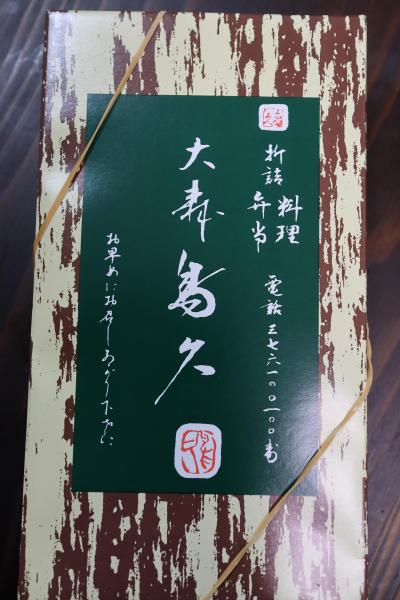 折詰 料理
弁当
電話 三七六一〇一〇〇番
大森 鳥久
お早めにお召しあがり下さい